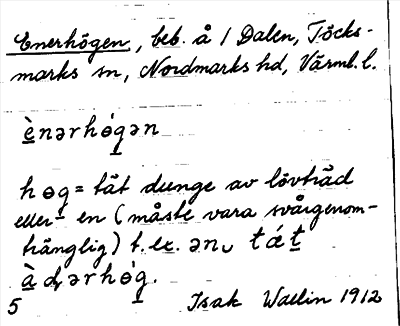 Enerhögen, beb. å 1 Dalen, Töcks-
marks sn, Nordmarks hd, Värml. l.
ènərhǿgən
høg = tät dunge av lövträd
eller en (måste vara svårgenom-
tränglig) t. ex. ən tǽt
àdərhǿg.
5 Isak Wallin 1912